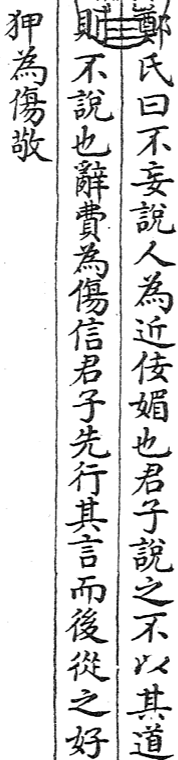 鄭氏曰不妄說人為近佞媚也君子說之不以其道
則不說也辭費為傷信君子先行其言而後從之好
狎為傷敬